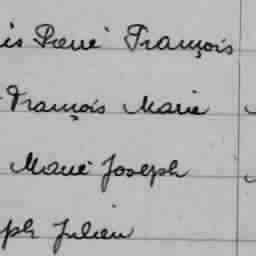 is Pierre François
François Marie
Marie Joseph
ph Julien